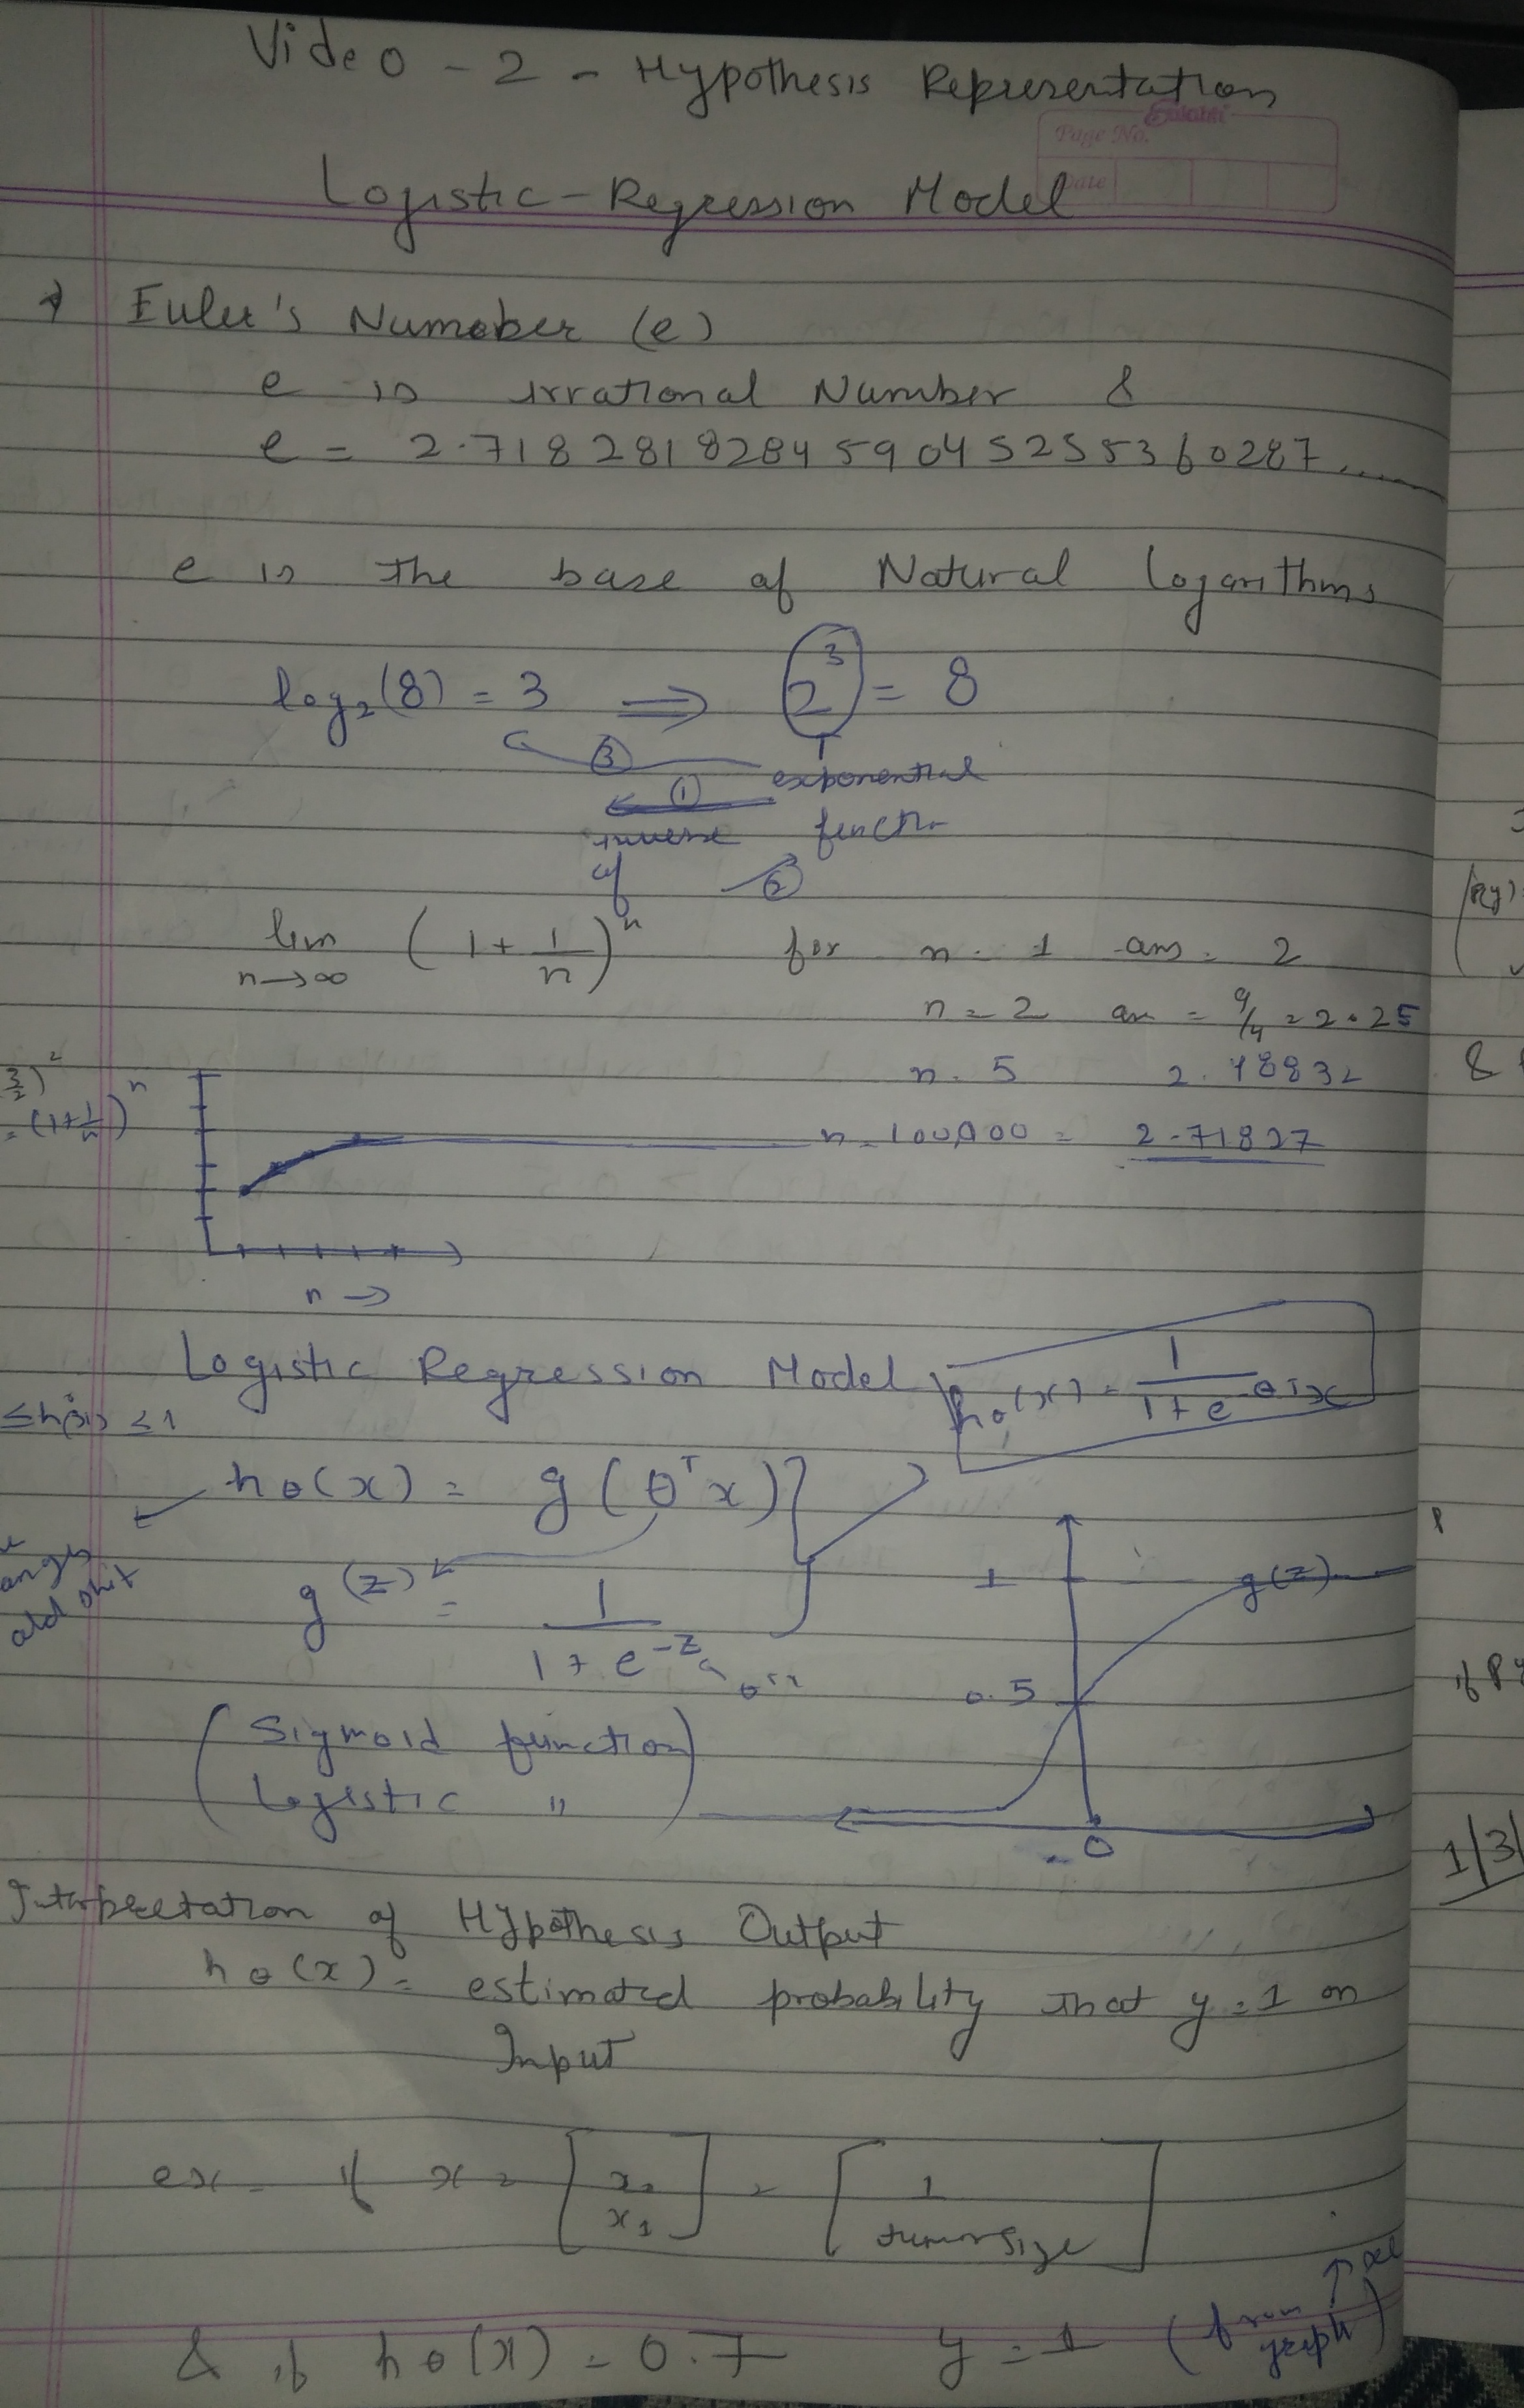 Video - 2 - Hypothesis Representation
Sulabh
Page No.
Date
Logistic-Regression Model
→ Euler's Number (e)
e is irrational Number &
e = 2.718281828459045255360287......
e is the base of Natural logarithms
log₂(8) = 3 ⟹ 2³ = 8
③
① exponential
inverse function
of ②
lim n→∞ (1 + 1/n)ⁿ for n = 1 ans = 2
n = 2 an = 9/4 = 2.25
n = 5 2.48832
n = 100,000 = 2.71827
3/2)²
= (1+1/n)ⁿ
n →
Logistic Regression Model hθ(x) = 1/(1+e^-θᵀx)
≤ hθ(x) ≤ 1
hθ(x) = g(θᵀx)
g(z) = 1/(1+e^-z)
1
g(z)
0.5
(Sigmoid function
Logistic ")
0
Interpretation of Hypothesis Output
hθ(x) = estimated probability that y = 1 on
Input
ex - if x = [x₀ x₁] = [1 tumorsize]
& if hθ(x) = 0.7 y = 1 (from graph)